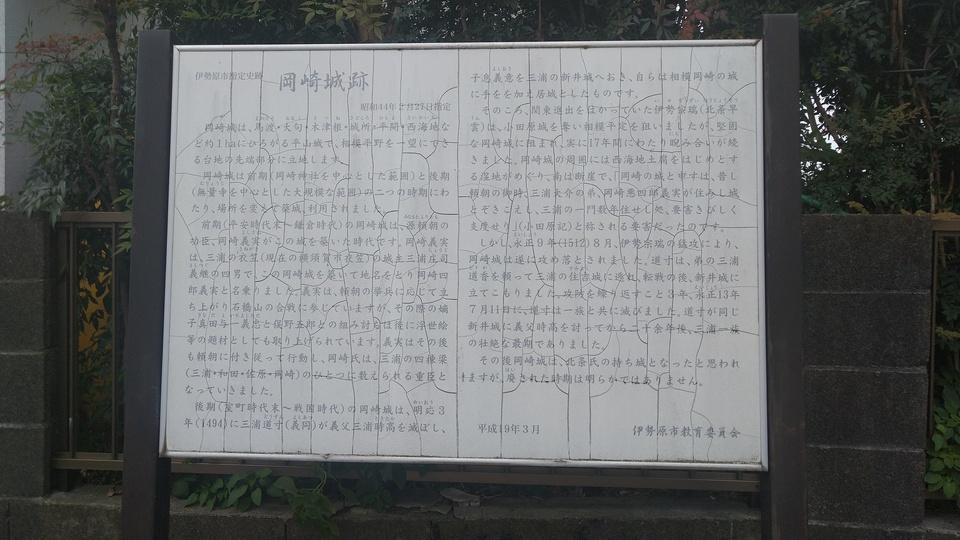 伊勢原市指定史跡
岡崎城跡
昭和44年2月27日指定
岡崎城は、馬渡・大句・木津根・城所・平間・西海地な
ど約11haにひろがる平山城で、相模平野を一望にでき
る台地の先端部分に立地します。
岡崎城は前期(神社を中心とした範囲)と後期
(無量寺を中心とした大規模な範囲)の二つの時期にわ
たり、場所を変えて築城、利用されました。
前期(平安時代末～鎌倉時代)の岡崎城は、源頼朝の
功臣、岡崎義実がこの城を築いた時代です。岡崎義実
は、三浦の衣笠(現在の横須賀市衣笠)の城主三浦庄司
義継の四男で、この岡崎城を築いて地名をとり岡崎四
郎義実と名乗りました。義実は、頼朝の挙兵に応じて立
ち上がり石橋山の合戦に参じていますが、その際の嫡
子真田与一義忠と俣野五郎との組み討ちは後に浮世絵
等の題材としても取り上げられています。義実はその後
も頼朝に付き従って行動し、岡崎氏は、三浦の四棟梁
(三浦・和田・佐原・岡崎)のひとつに数えられる重臣と
なっていきました。
後期(室町時代末～戦国時代)の岡崎城は、明応3
年(1494)に三浦道寸(義同)が義父三浦時高を滅ぼし、
子息義意を三浦の新井城へおき、自らは相模岡崎の城
に手を加え居城としたものです。
そのころ、関東進出をはかっていた伊勢宗瑞(北条早
雲)は、小田原城を奪い相模平定を狙いましたが、堅固
な岡崎城に阻まれ、実に17年間にわたり睨み合いが続
きました。岡崎城の周囲には西海地土腐をはじめとす
る湿地がめぐり、南は断崖で、「岡崎の城と申すは、昔し
頼朝の御時、三浦大介の弟、岡崎悪四郎義実が住みし城
とぞきこえし、三浦の一門数年住せし処、要害きびしく
支度せり」(小田原記)と称される要害だったのです。
しかし、永正9年(1512)8月、伊勢宗瑞の猛攻により、
岡崎城は遂に攻め落とされました。道寸は、弟の三浦
道香を頼って三浦の住吉城に逃れ、転戦の後、新井城に
立てこもりました。攻防を繰り返すこと3年、永正13年
7月11日に、道寸は一族と共に滅びました。道寸が同じ
新井城に義父時高を討ってから二十余年後、三浦一族
の壮絶な最期でありました。
その後岡崎城は、北条氏の持ち城となったと思われ
ますが、廃された時期は明らかではありません。
平成19年3月
伊勢原市教育委員会